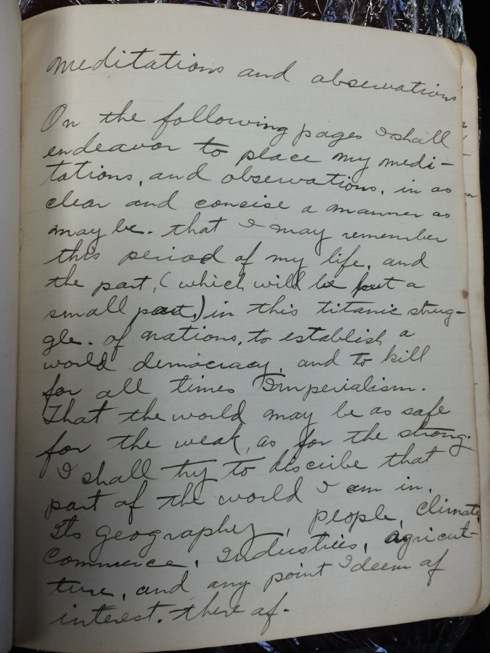 meditations and observations
On the following pages I shall
endeavor to place my medi-
tations, and observations, in as
clear and consise a manner as
may be. that I may remember
this period of my life, and
the part, (which will be but a
small part,) in this titanic strug-
gle. of nations, to establish a
world democracy, and to kill
for all times Imperialism.
That the world may be as safe
for the weak, as for the strong.
I shall try to discribe that
part of the world I am in.
Its geography, people, climate,
commerce, Industries, agricul-
ture, and any point I deem of
interest. there of.